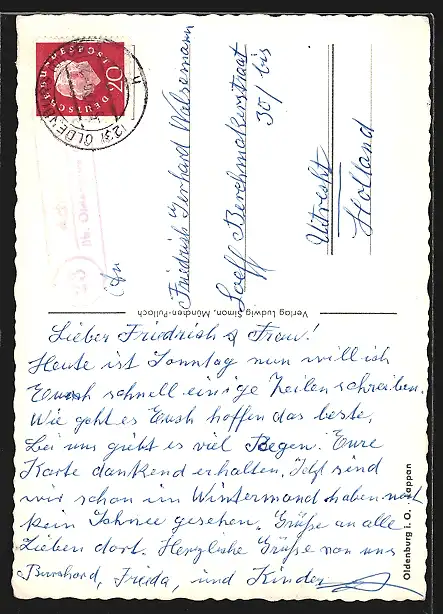 DEUTSCHE BUNDESPOST
20
(23) OLDENBURG
An
Friedrich Gerhard Walsemann
Loeff Berchmakerstraat
30/bis
Uitrecht
Holland
Verlag Ludwig Simon, München-Pullach
Lieber Friedrich & Frau!
Heute ist Sonntag nun will ich
Euch schnell einige Zeilen schreiben.
Wie geht es Euch hoffen das beste,
bei uns gibt es viel Regen. Eure
Karte dankend erhalten. Jetzt sind
wir schon im Wintermond haben noch
kein Schnee gesehen. Grüße an alle
Lieben dort. Herzliche Grüße von uns
Bernhard, Freida, und Kinder
Oldenburg i. O. Lappan